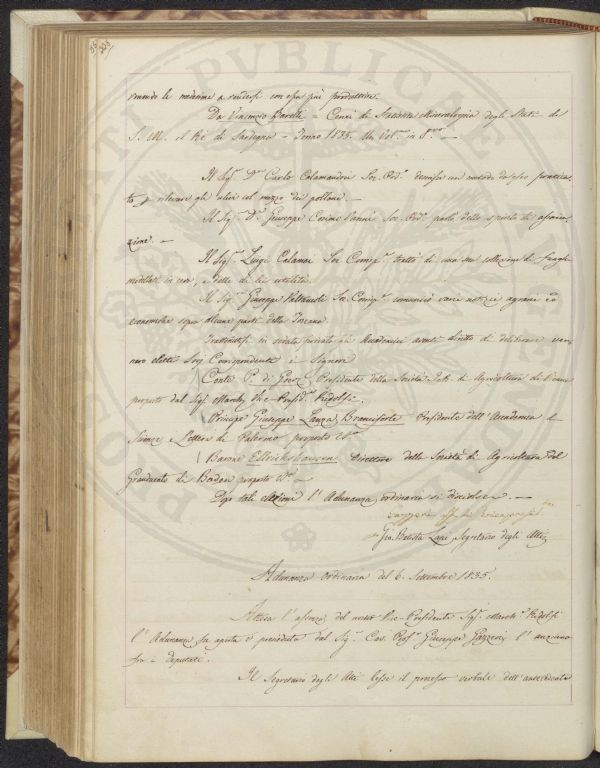 rmando le medesime a rendersi con essa più produttive.
Da Vincenzo Barelli - Cenni di Statistica Mineralogica degli Stati di
S. M. il Re di Sardegna - Torino 1835. Un Vol.e in 8.vo -
Il Sig.r D.r Carlo Calamandrei Soc. Ord.o descrisse un metodo da esso praticato
rilevare gli ulivi col mezzo dei polloni. -
Il Sig.r D.r Giuseppe Cosimo Vannini Soc. Ord.o parlò dello spirito di associazione. -
Il Sig.r Luigi Calamai Soc. Corrisp.e trattò di una sua collezione di funghi
modellati in cera, e della di lei utilità.
Il Sig.r Giuseppe Soc. Corrisp.e comunicò varie notizie agrarie ed
economiche sopra alcune parti della Toscana.
Trattenutisi in seduta privata gli Accademici aventi diritto di deliberare vennero
eletti Soci Corrispondenti i Signori
Conte P. di Goess Presidente della Società Imp. di Agricoltura di Vienna
proposto dal Sig.r March.e Vice-Presid.e Ridolfi.
Principe Giuseppe Lanza Branciforte Presidente dell'Accademia di
Scienze e Lettere di Palermo proposto id.m
Barone Ellrichshausen Direttore della Società di Agricoltura del
Granducato di Baden proposto id.m -
Dopo tali elezioni l'Adunanza ordinaria si disciolse. -
Gio. Batista Lapi Segretario degli Atti
Adunanza ordinaria del 6. Settembre 1835.
Attesa l'assenza del nostro Vice-Presidente Sig.r March.e Ridolfi
l'Adunanza fu aperta e preseduta dal Sig.r Cav. Prof.e Giuseppe Gazzeri l'anziano
fra i deputati.
Il Segretario degli Atti lesse il processo verbale dell'antecedente